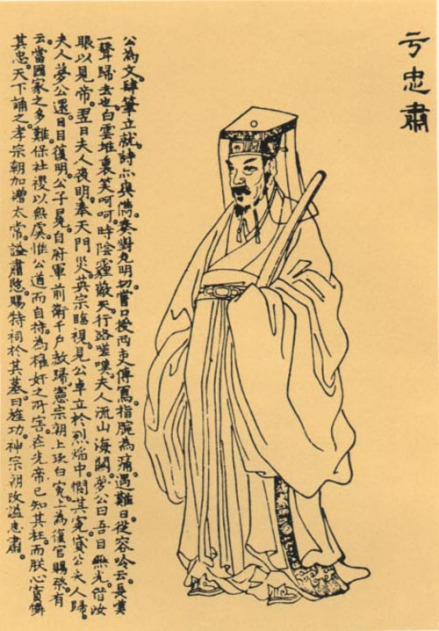 亐忠肅
公為文肆筆立就詩亦與備奏對尤明切嘗口授兩吏傳寫指腕為痛遇難日從容吟云
一聲歸去也白雲堆裏笑呵呵時陰霾蔽天行路嗟嘆夫人流山海關夢公曰吾目無光借汝
眼以見帝翌日夫人喪明奉天門災英宗臨視見公立於烈焰中憫其寃貸公夫人歸
夫人夢公還目目復明公子冕自府軍前衛千戶放歸憲宗朝上疏白寃上為復官賜祭有
云當國家之多難保社稷以無虞惟公道而自持為權奸之所害在先帝已知其枉而朕心實憐
其忠天下誦之孝宗朝加贈太常謚肅愍賜特祠於其墓曰旌功神宗朝改謚忠肅